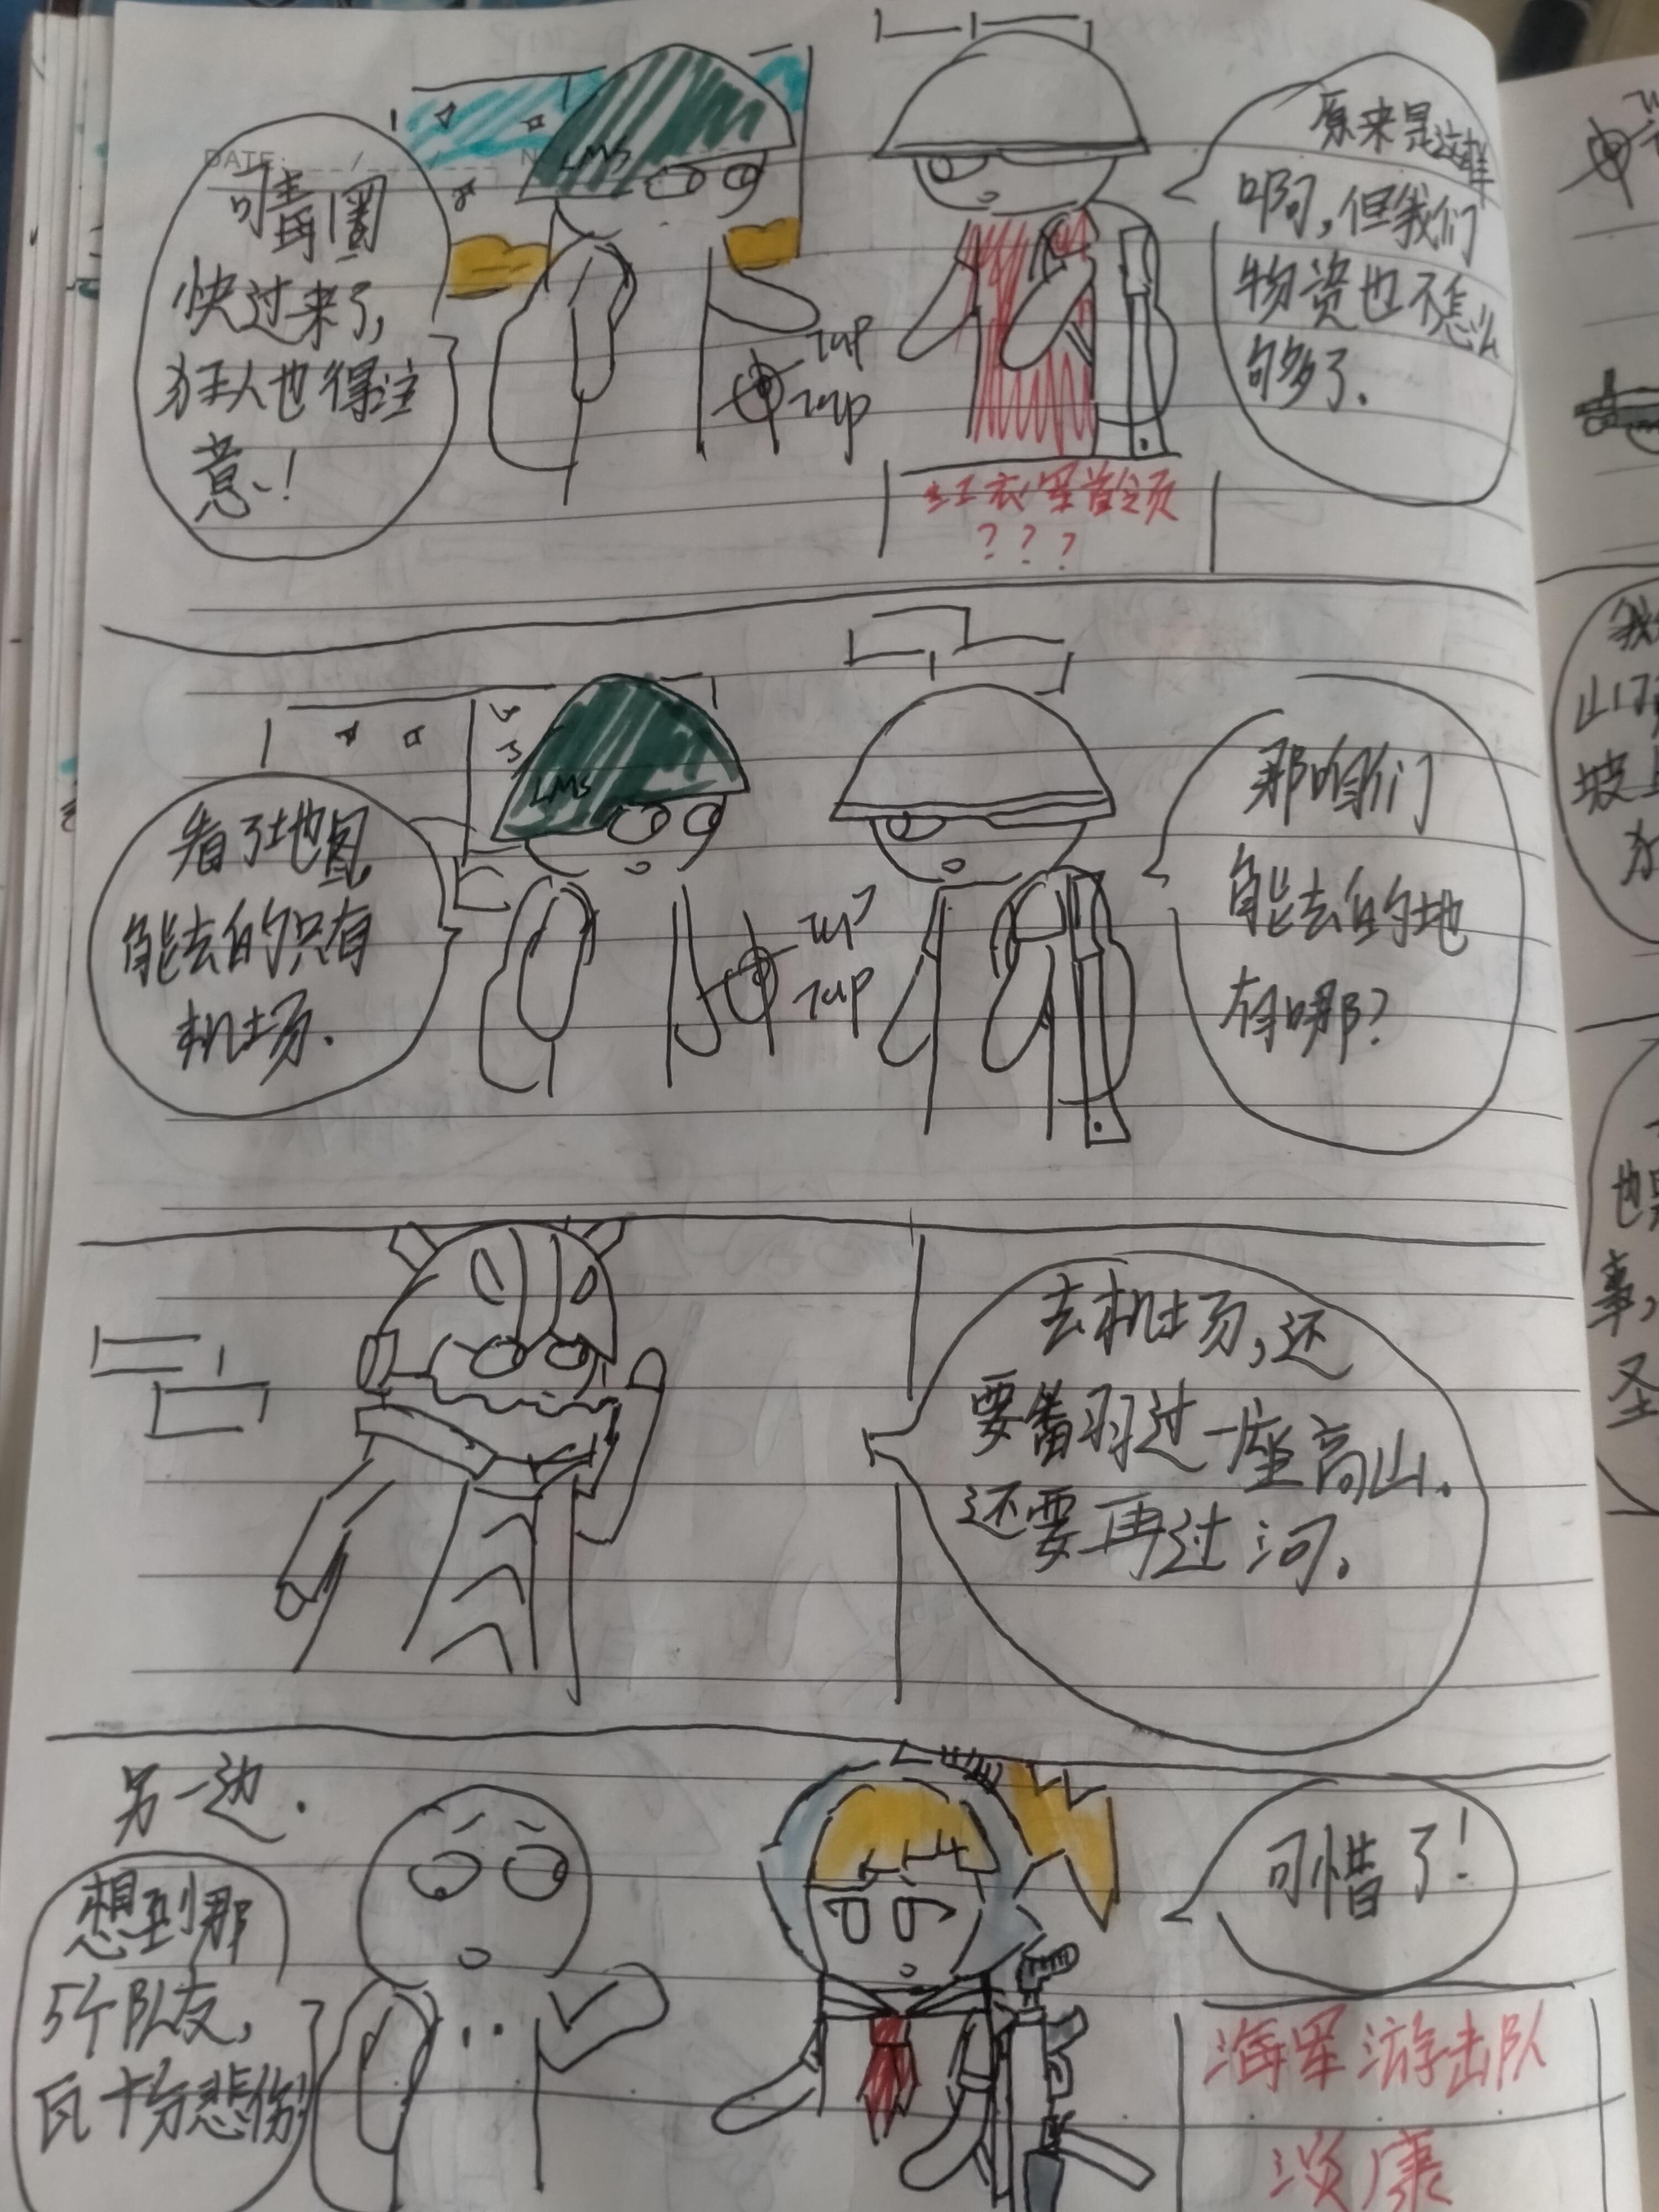 DATE:
快过来了,
狂人也得注
意!
LMS
zup
zup
原来是这样
啊,但我们
物资也不怎么
够多了.
红衣军首领
???
看了地图,
能去的只有
机场.
LMS
zup
zup
那咱们
能去的地
有哪?
去机场,还
要翻过一座高山.
还要再过河.
另一边.
想到那
5个队友,
瓦十分悲伤
可惜了!
海军游击队